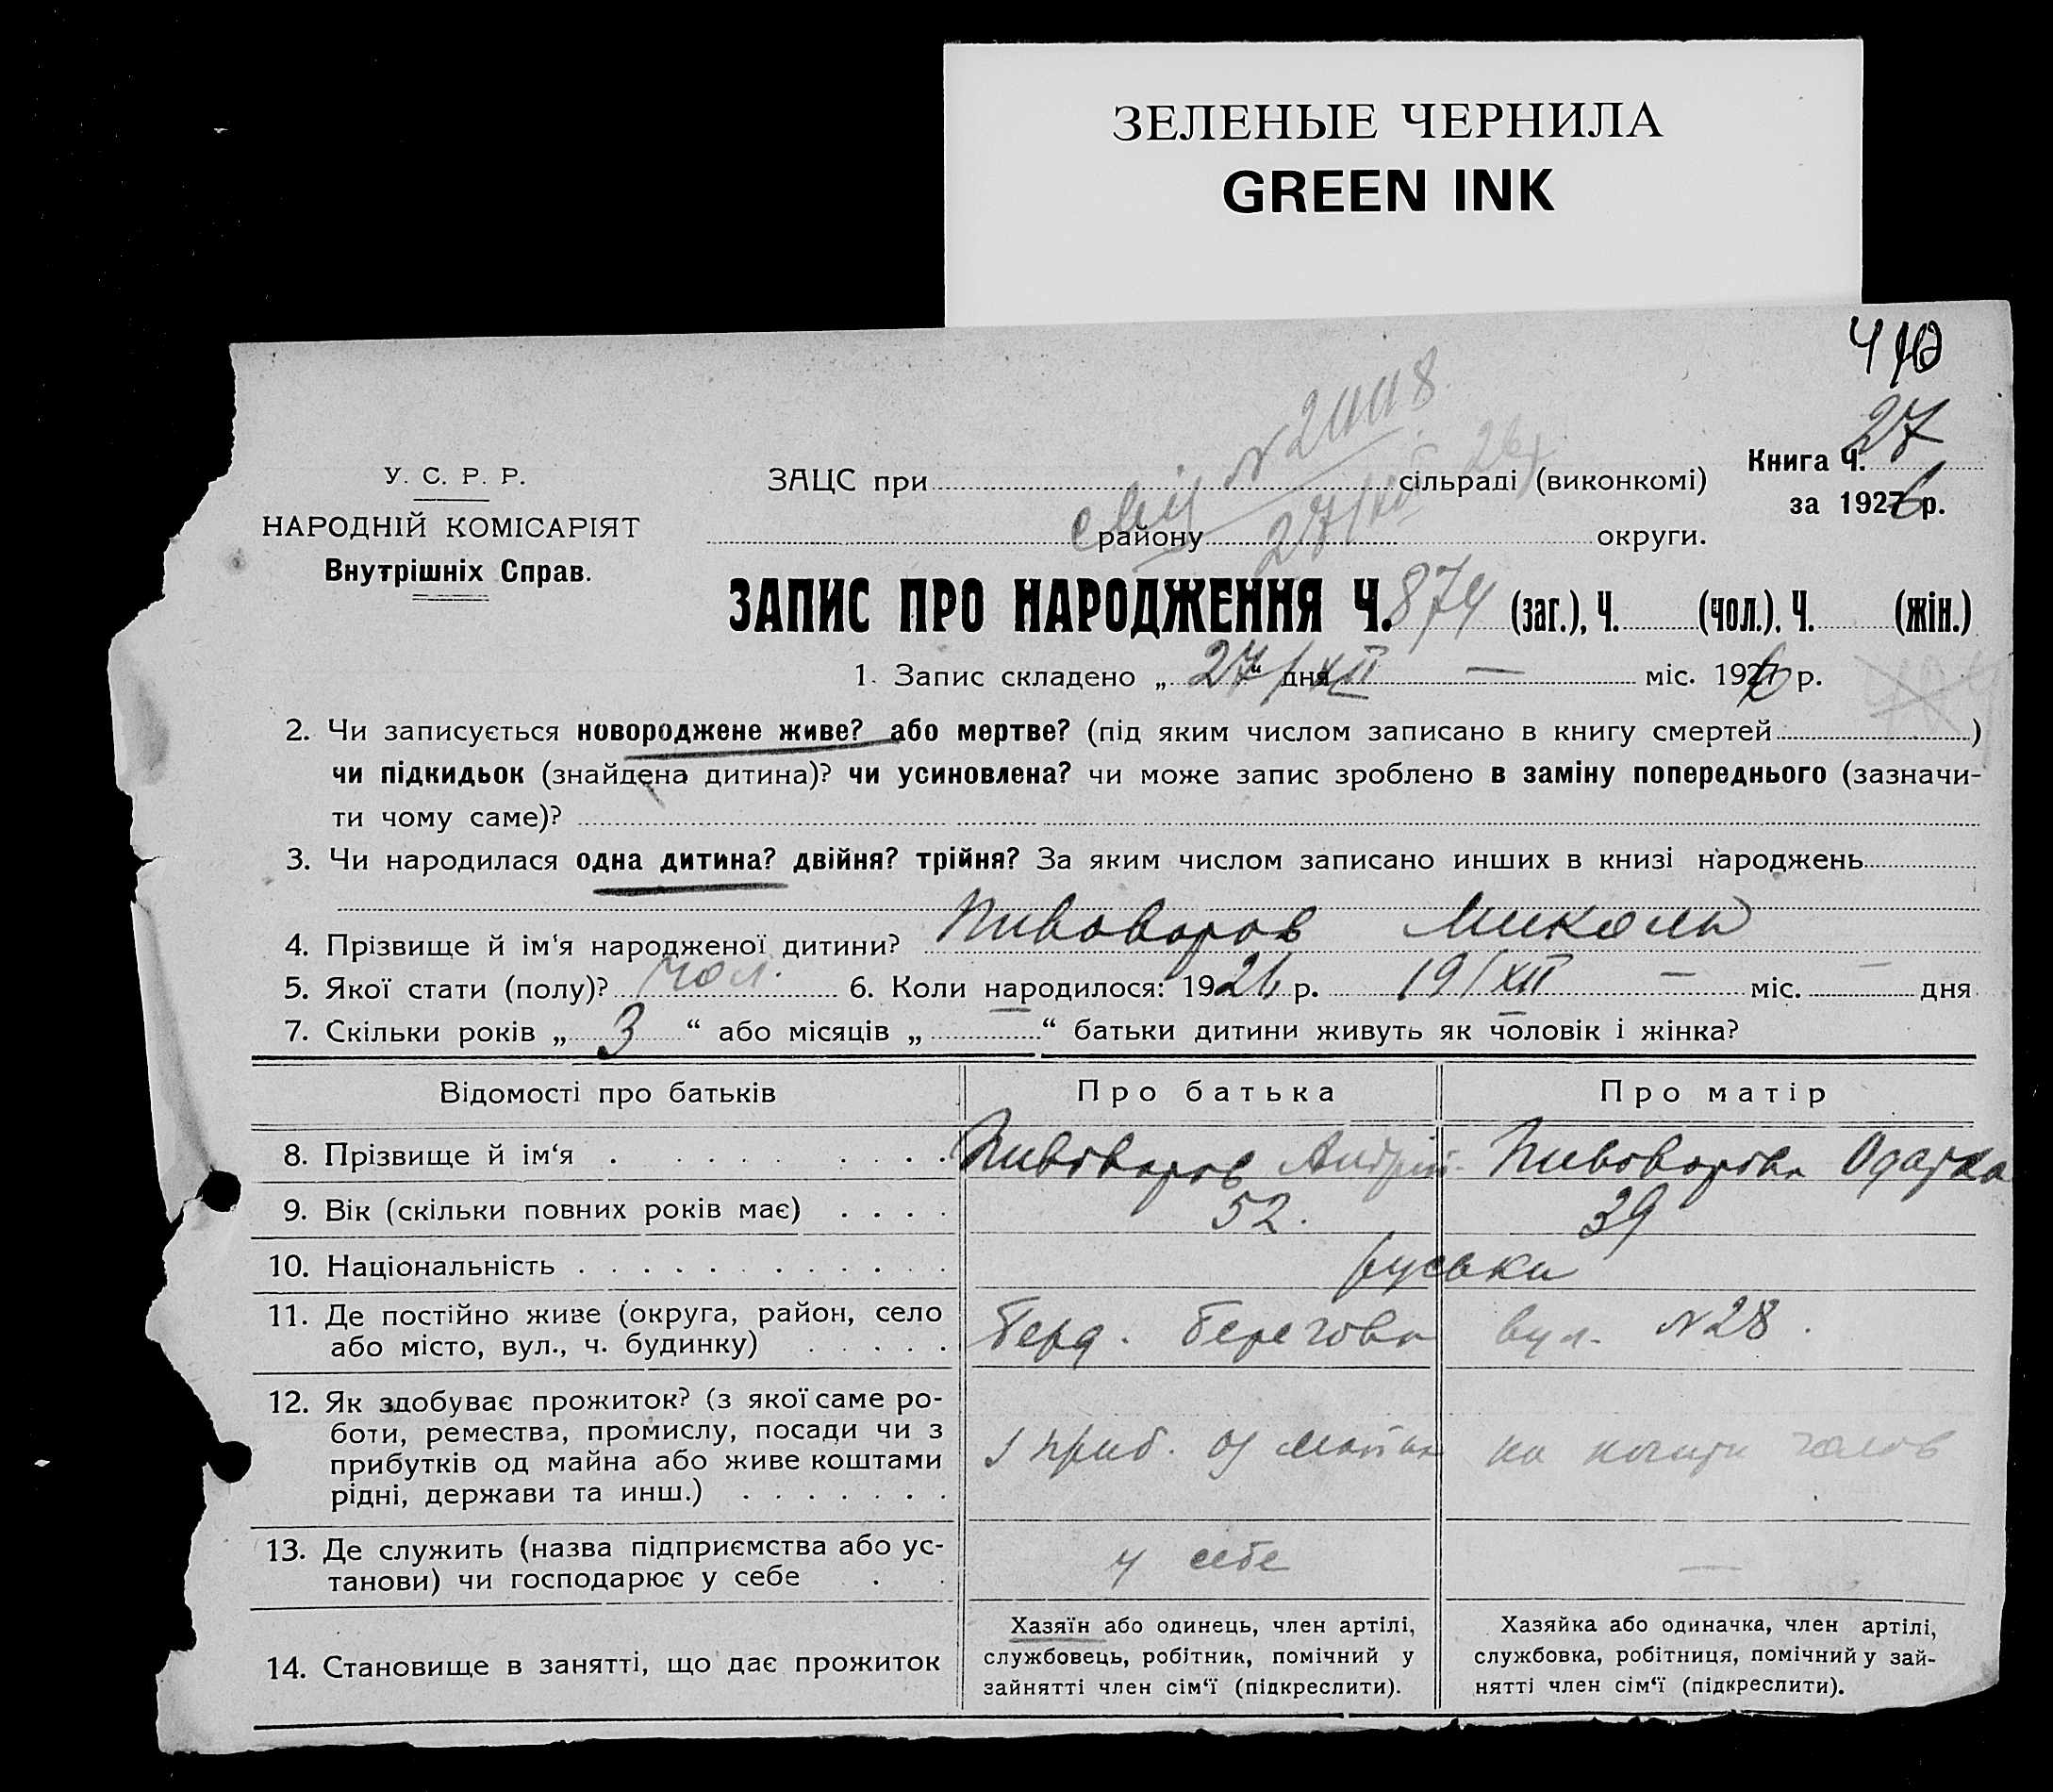 ЗЕЛЕНЫЕ ЧЕРНИЛА
GREEN INK
27
У. С. Р. Р.
НАРОДНІЙ КОМІСАРІЯТ
Внутрішніх Справ.
Книга Ч.
за 1926 р.
№ 2008
27/XII 26
ЗАЦС при сільраді (виконкомі)
району округи.
ЗАПИС ПРО НАРОДЖЕННЯ Ч. 874 (заг.), Ч. (чол.). Ч. (жін.)
1. Запис складено „ 27 “ дня XII — міс. 1926 р.
2. Чи записується новороджене живе? або мертве? (під яким числом записано в книгу смертей )
чи підкидьок (знайдена дитина)? чи усиновлена? чи може запис зроблено в заміну попереднього (зазначи-
ти чому саме)?
3. Чи народилася одна дитина? двійня? трійня? За яким числом записано инших в книзі народжень
4. Прізвище й ім‘я народженої дитини? Пивоваров Микола
5. Якої стати (полу)? чол. 6. Коли народилося: 1926 р. 19/XII — міс. — дня
7. Скільки років „ 3 “ або місяців „ — “ батьки дитини живуть як чоловік і жінка?
Відомості про батьків Про батька Про матір
8. Прізвище й ім‘я Пивоваров Андрій Пивоварова Одарка
9. Вік (скільки повних років має) 52. 39
10. Національність руськи
11. Де постійно живе (округа, район, село
або місто, вул., ч. будинку) Берд. Берегова вул. №28.
12. Як здобуває прожиток? (з якої саме ро-
боти, ремества, промислу, посади чи з
прибутків од майна або живе коштами
рідні, держави та инш.) з приб. од майна на кошти чолов
13. Де служить (назва підприємства або ус-
танови) чи господарює у себе у себе —
14. Становище в занятті, що дає прожиток
Хазяїн або одинець, член артілі,
службовець, робітник, помічний у
зайнятті член сім‘ї (підкреслити).
Хазяйка або одиначка, член артілі,
службовка, робітниця, помічний у зай-
нятті член сім‘ї (підкреслити).